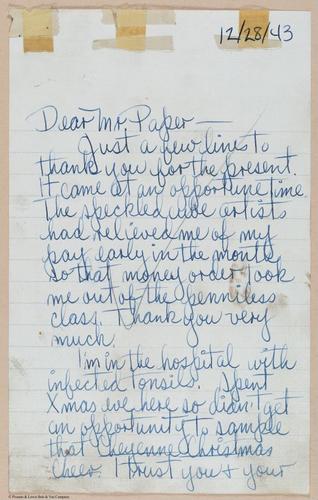 12/28/43
Dear Mr. Paper —
Just a few lines to
thank you for the present.
It came at an opportune time.
The speckled cube artists
had relieved me of my
pay early in the month
so that money order took
me out of the penniless
class. Thank you very
much.
I'm in the hospital with
infected tonsils. Spent
Xmas eve here so didn't get
an opportunity to sample
that Cheyenne Christmas
cheer. I trust you & your